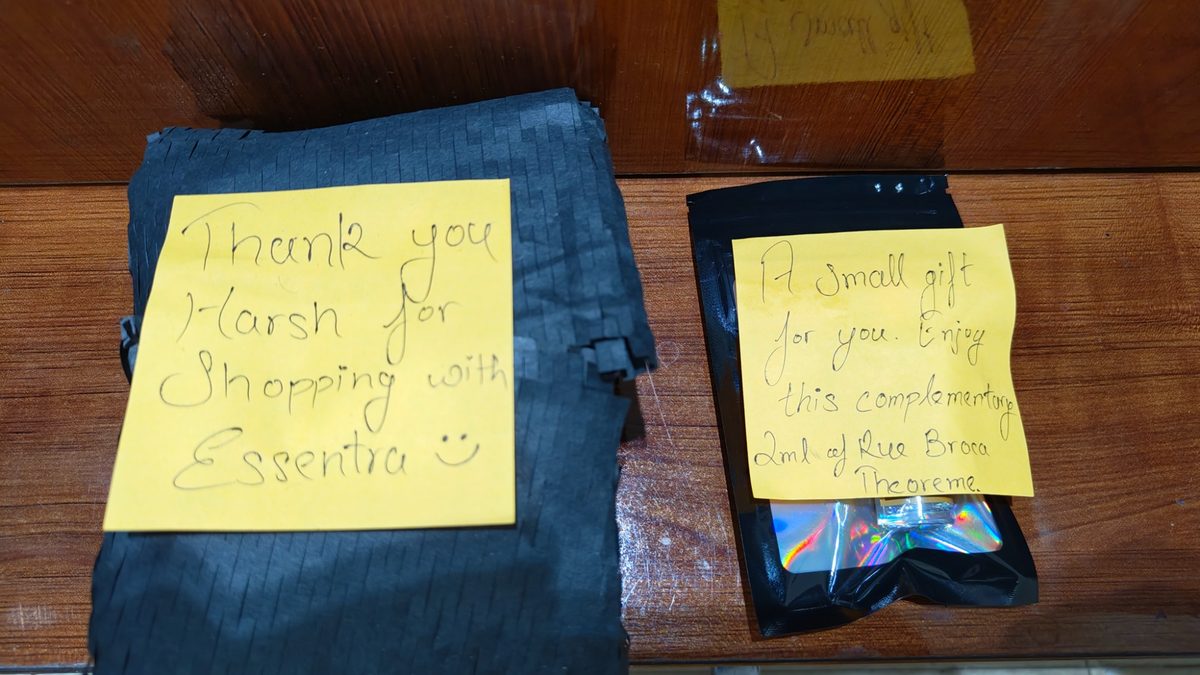 Thank you
Harsh for
Shopping with
Essentra :)
A small gift
for you. Enjoy
this complementary
2ml of Rue Broca
Theoreme.